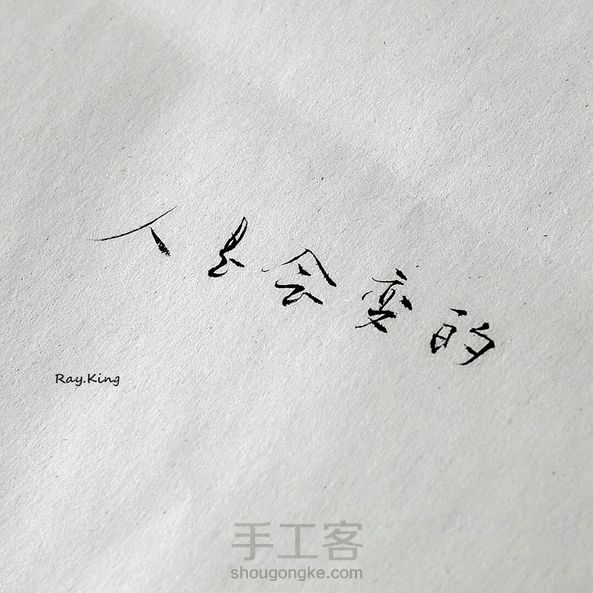 人是会变的
Ray.King
手工客
shougongke.com